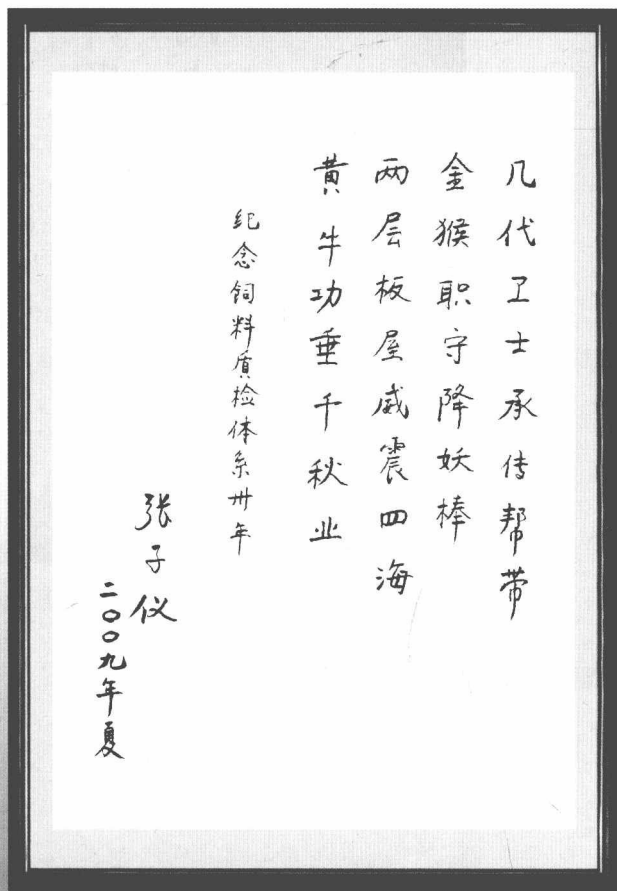 几代卫士承传帮带
金猴职守降妖棒
两层板屋威震四海
黄牛功垂千秋业
纪念饲料质检体系卅年
张子仪
二〇〇九年夏